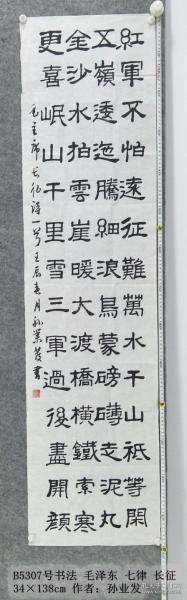 紅軍不怕遠征難萬水千山祇等閑
五嶺逶迤騰細浪烏蒙磅礴走泥丸
金沙水拍雲崖暖大渡橋橫鐵索寒
更喜岷山千里雪三軍過後盡開顏
毛主席长征诗一首壬辰春月孙業發書
B5307号书法 毛泽东 七律 长征
34×138cm 作者：孙业发